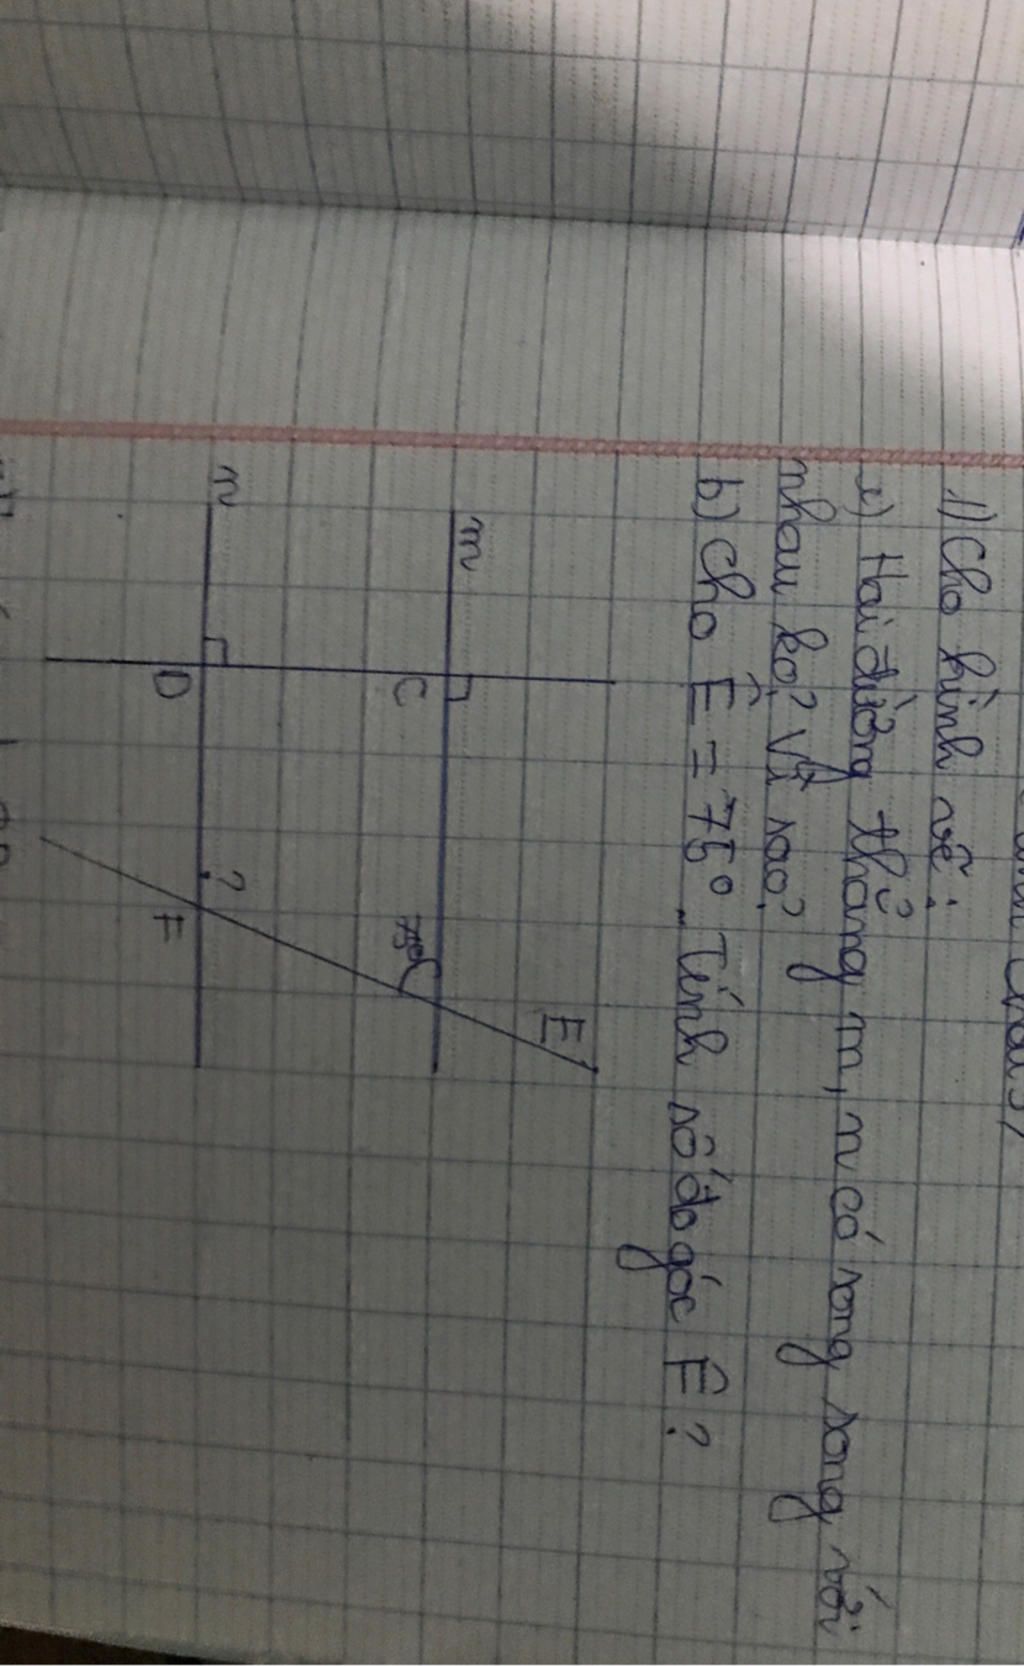 1) Cho hình vẽ:
a) Hai đường thẳng m, n có song song với
nhau ko? Vì sao?
b) Cho Ê = 75°. Tính số đo góc F?
E
m
C
75°
n
D
?
F